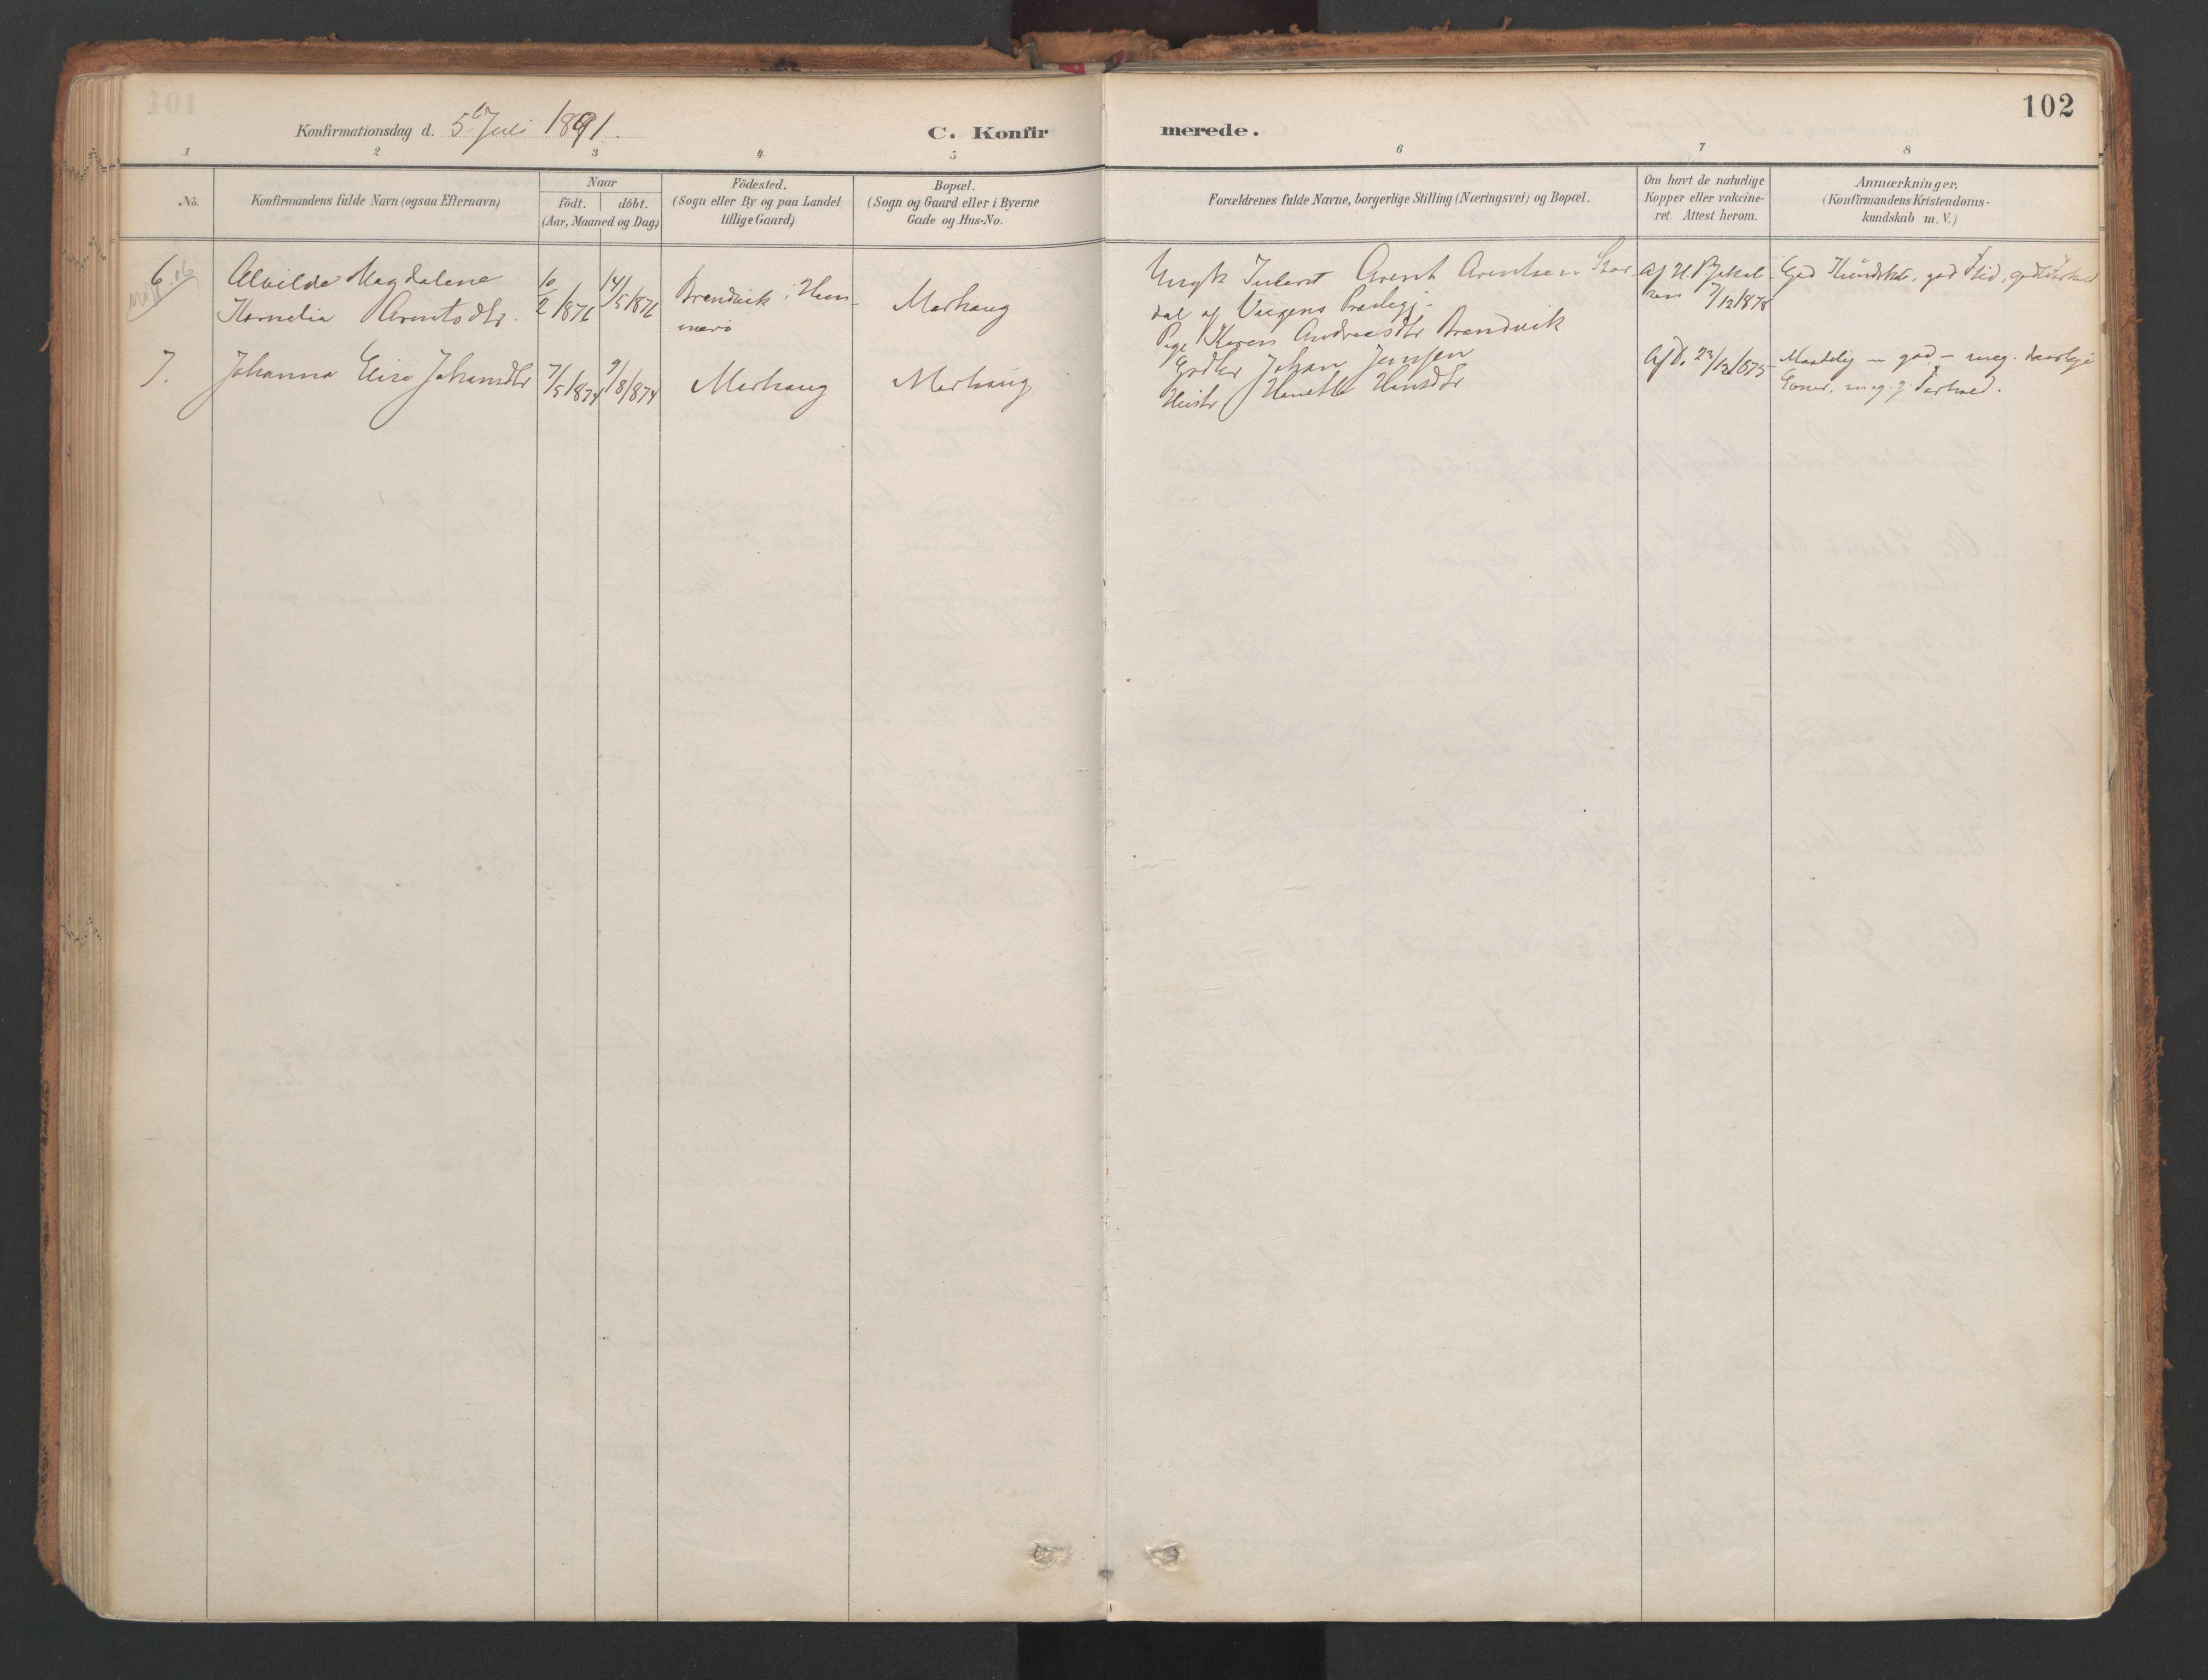 102
Konfirmationsdag d. 5te Juli 1891.
C. Konfirmerede.
1 2 3 4 5 6 7 8
No.
Konfirmandens fulde Navn (ogsaa Efternavn)
Naar
födt. döbt.
(Aar, Maaned og Dag)
Födested.
(Sogn eller By og paa Landet
tillige Gaard)
Bopæl.
(Sogn og Gaard eller i Byerne
Gade og Hus-No.
Forældrenes fulde Navne, borgerlige Stilling (Næringsvei) og Bopæl.
Om havt de naturlige
Kopper eller vakcine-
ret. Attest herom.
Anmærkninger.
(Konfirmandens Kristendoms-
kundskab m. V.)
6.
Alvilde Magdalene
Kornelia Arentsdtr.
10/2 1876
14/5 1876
Brendvik i Ham-
merö
Markaug
Ungk Arent Arentsen Stor-
dal af Vaagens Præstegj.
Pige Karen Andreasdtr Brendvik
Af H.
7/12/1878
God Kundsk. god Flid, godt Forhold
7.
Johanna Elise Johansdtr
7/5 1874
9/8/874
Markaug
Markaug
Johan Jensen
Hustr
Af D. 23/12/1875
Maadelig god meg.
meg. g. Forhold.